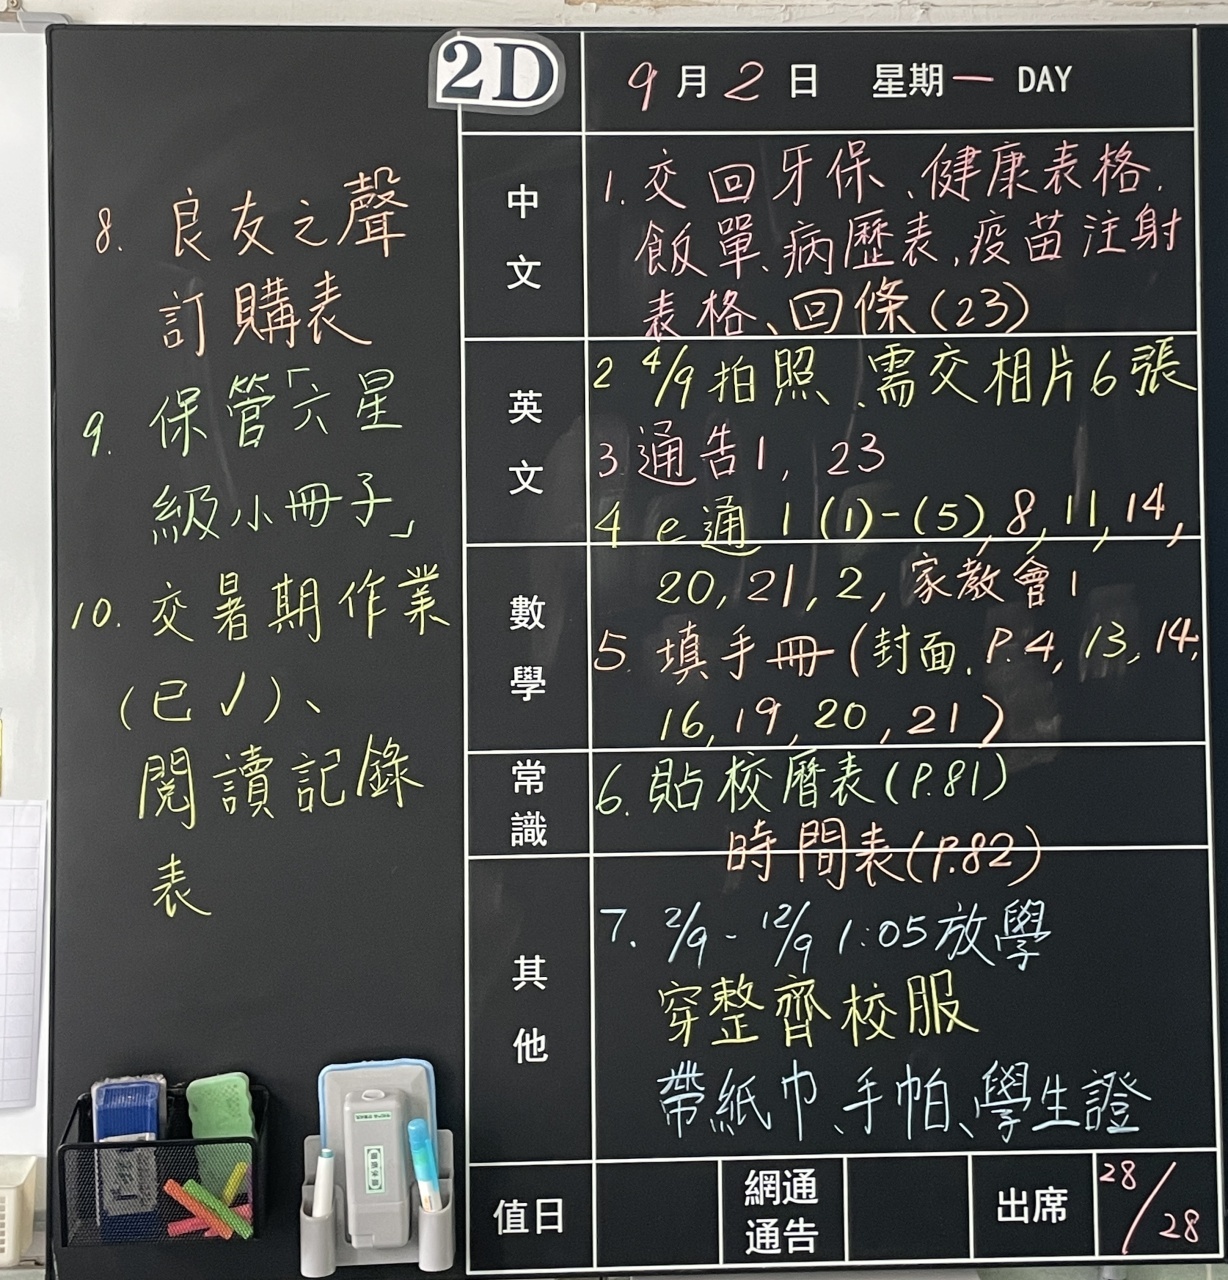 2D
9月2日 星期一 DAY
中文
1. 交回牙保、健康表格、
飯單、病歷表、疫苗注射
表格、回條(23)
英文
2 4/9拍照、需交相片6張
3 通告1, 23
4 e通 1 (1)-(5), 8, 11, 14,
數學
20, 21, 2, 家教會1
5. 填手冊(封面、P.4, 13, 14,
16, 19, 20, 21)
常識
6. 貼校曆表(P.81)
時間表(P.82)
其他
7. 2/9 - 12/9 1:05放學
穿整齊校服
帶紙巾、手帕、學生證
值日
網通
通告
出席 28/28
8. 良友之聲
訂購表
9. 保管「六星
級小冊子」
10. 交暑期作業
(已✓)、
閱讀記錄
表